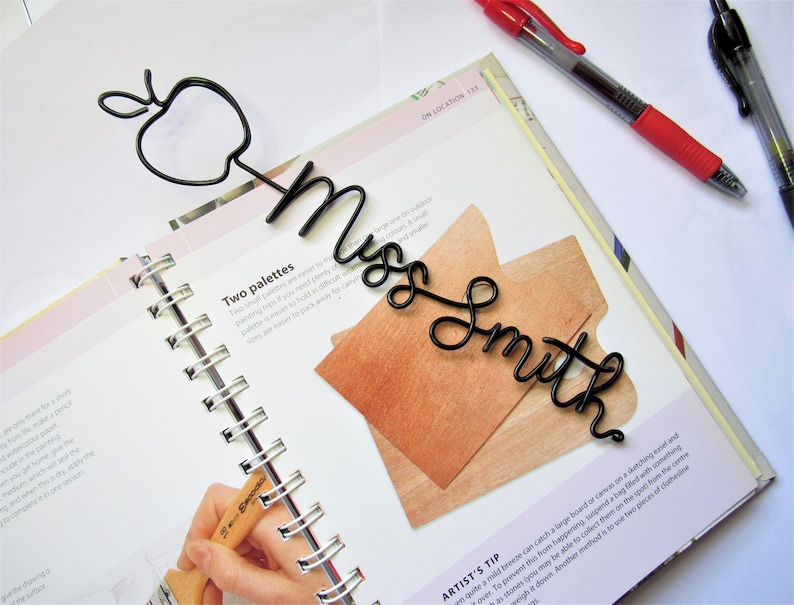 Miss Smith
ON LOCATION 133
Two palettes
Two small palettes are easier to than one large one on outdoor
painting trips if you need plenty of colours. A small
palette is easier to hold in difficult and smaller
sizes are easier to pack away for
are only there for a short
from life, make a pencil
watercolour paper,
include in the painting.
you get home, give the
medium, which will seal the
and when this is dry, apply the
to complete it in one session.
give the drawing a
of the surface.
Escoda
ARTIST'S TIP
quite a mild breeze can catch a large board or canvas on a sketching easel and
it over. To prevent this from happening, suspend a bag filled with something
such as stones (you may be able to collect them on the spot) from the centre
weigh it down. Another method is to use two pieces of clothesline